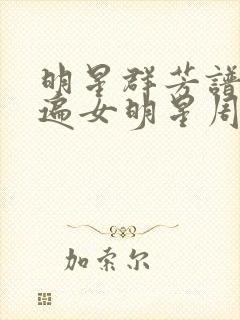 明星群芳譜
遍女明星周
加索尔